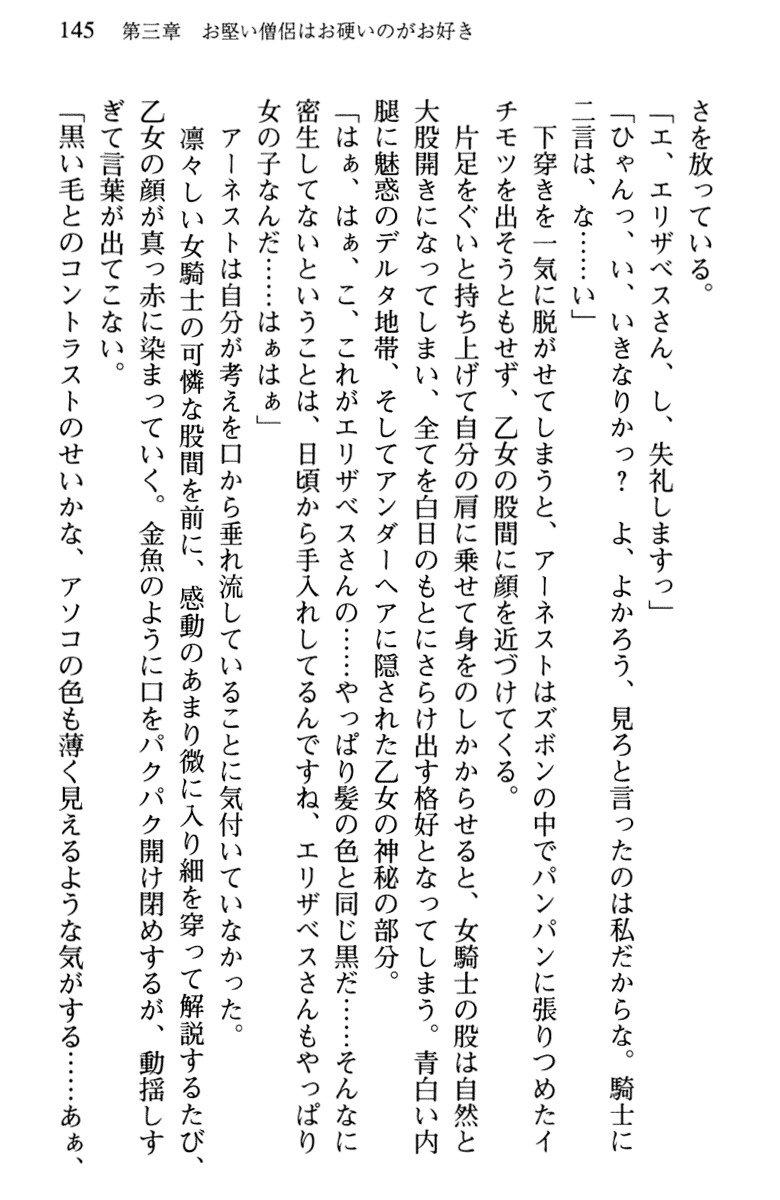 145　第三章　お堅い僧侶はお硬いのがお好き
さを放っている。
「エ、エリザベスさん、し、失礼しますっ」
「ひゃんっ、い、いきなりかっ？　よ、よかろう、見ろと言ったのは私だからな。騎士に
二言は、な……い」
　下穿きを一気に脱がせてしまうと、アーネストはズボンの中でパンパンに張りつめたイ
チモツを出そうともせず、乙女の股間に顔を近づけてくる。
　片足をぐいと持ち上げて自分の肩に乗せて身をのしかからせると、女騎士の股は自然と
大股開きになってしまい、全てを白日のもとにさらけ出す格好となってしまう。青白い内
腿に魅惑のデルタ地帯、そしてアンダーヘアに隠された乙女の神秘の部分。
「はぁ、はぁ、こ、これがエリザベスさんの……やっぱり髪の色と同じ黒だ……そんなに
密生してないということは、日頃から手入れしてるんですね、エリザベスさんもやっぱり
女の子なんだ……はぁはぁ」
　アーネストは自分が考えを口から垂れ流していることに気付いていなかった。
　凛々しい女騎士の可憐な股間を前に、感動のあまり微に入り細を穿って解説するたび、
乙女の顔が真っ赤に染まっていく。金魚のように口をパクパク開け閉めするが、動揺しす
ぎて言葉が出てこない。
「黒い毛とのコントラストのせいかな、アソコの色も薄く見えるような気がする……あぁ、